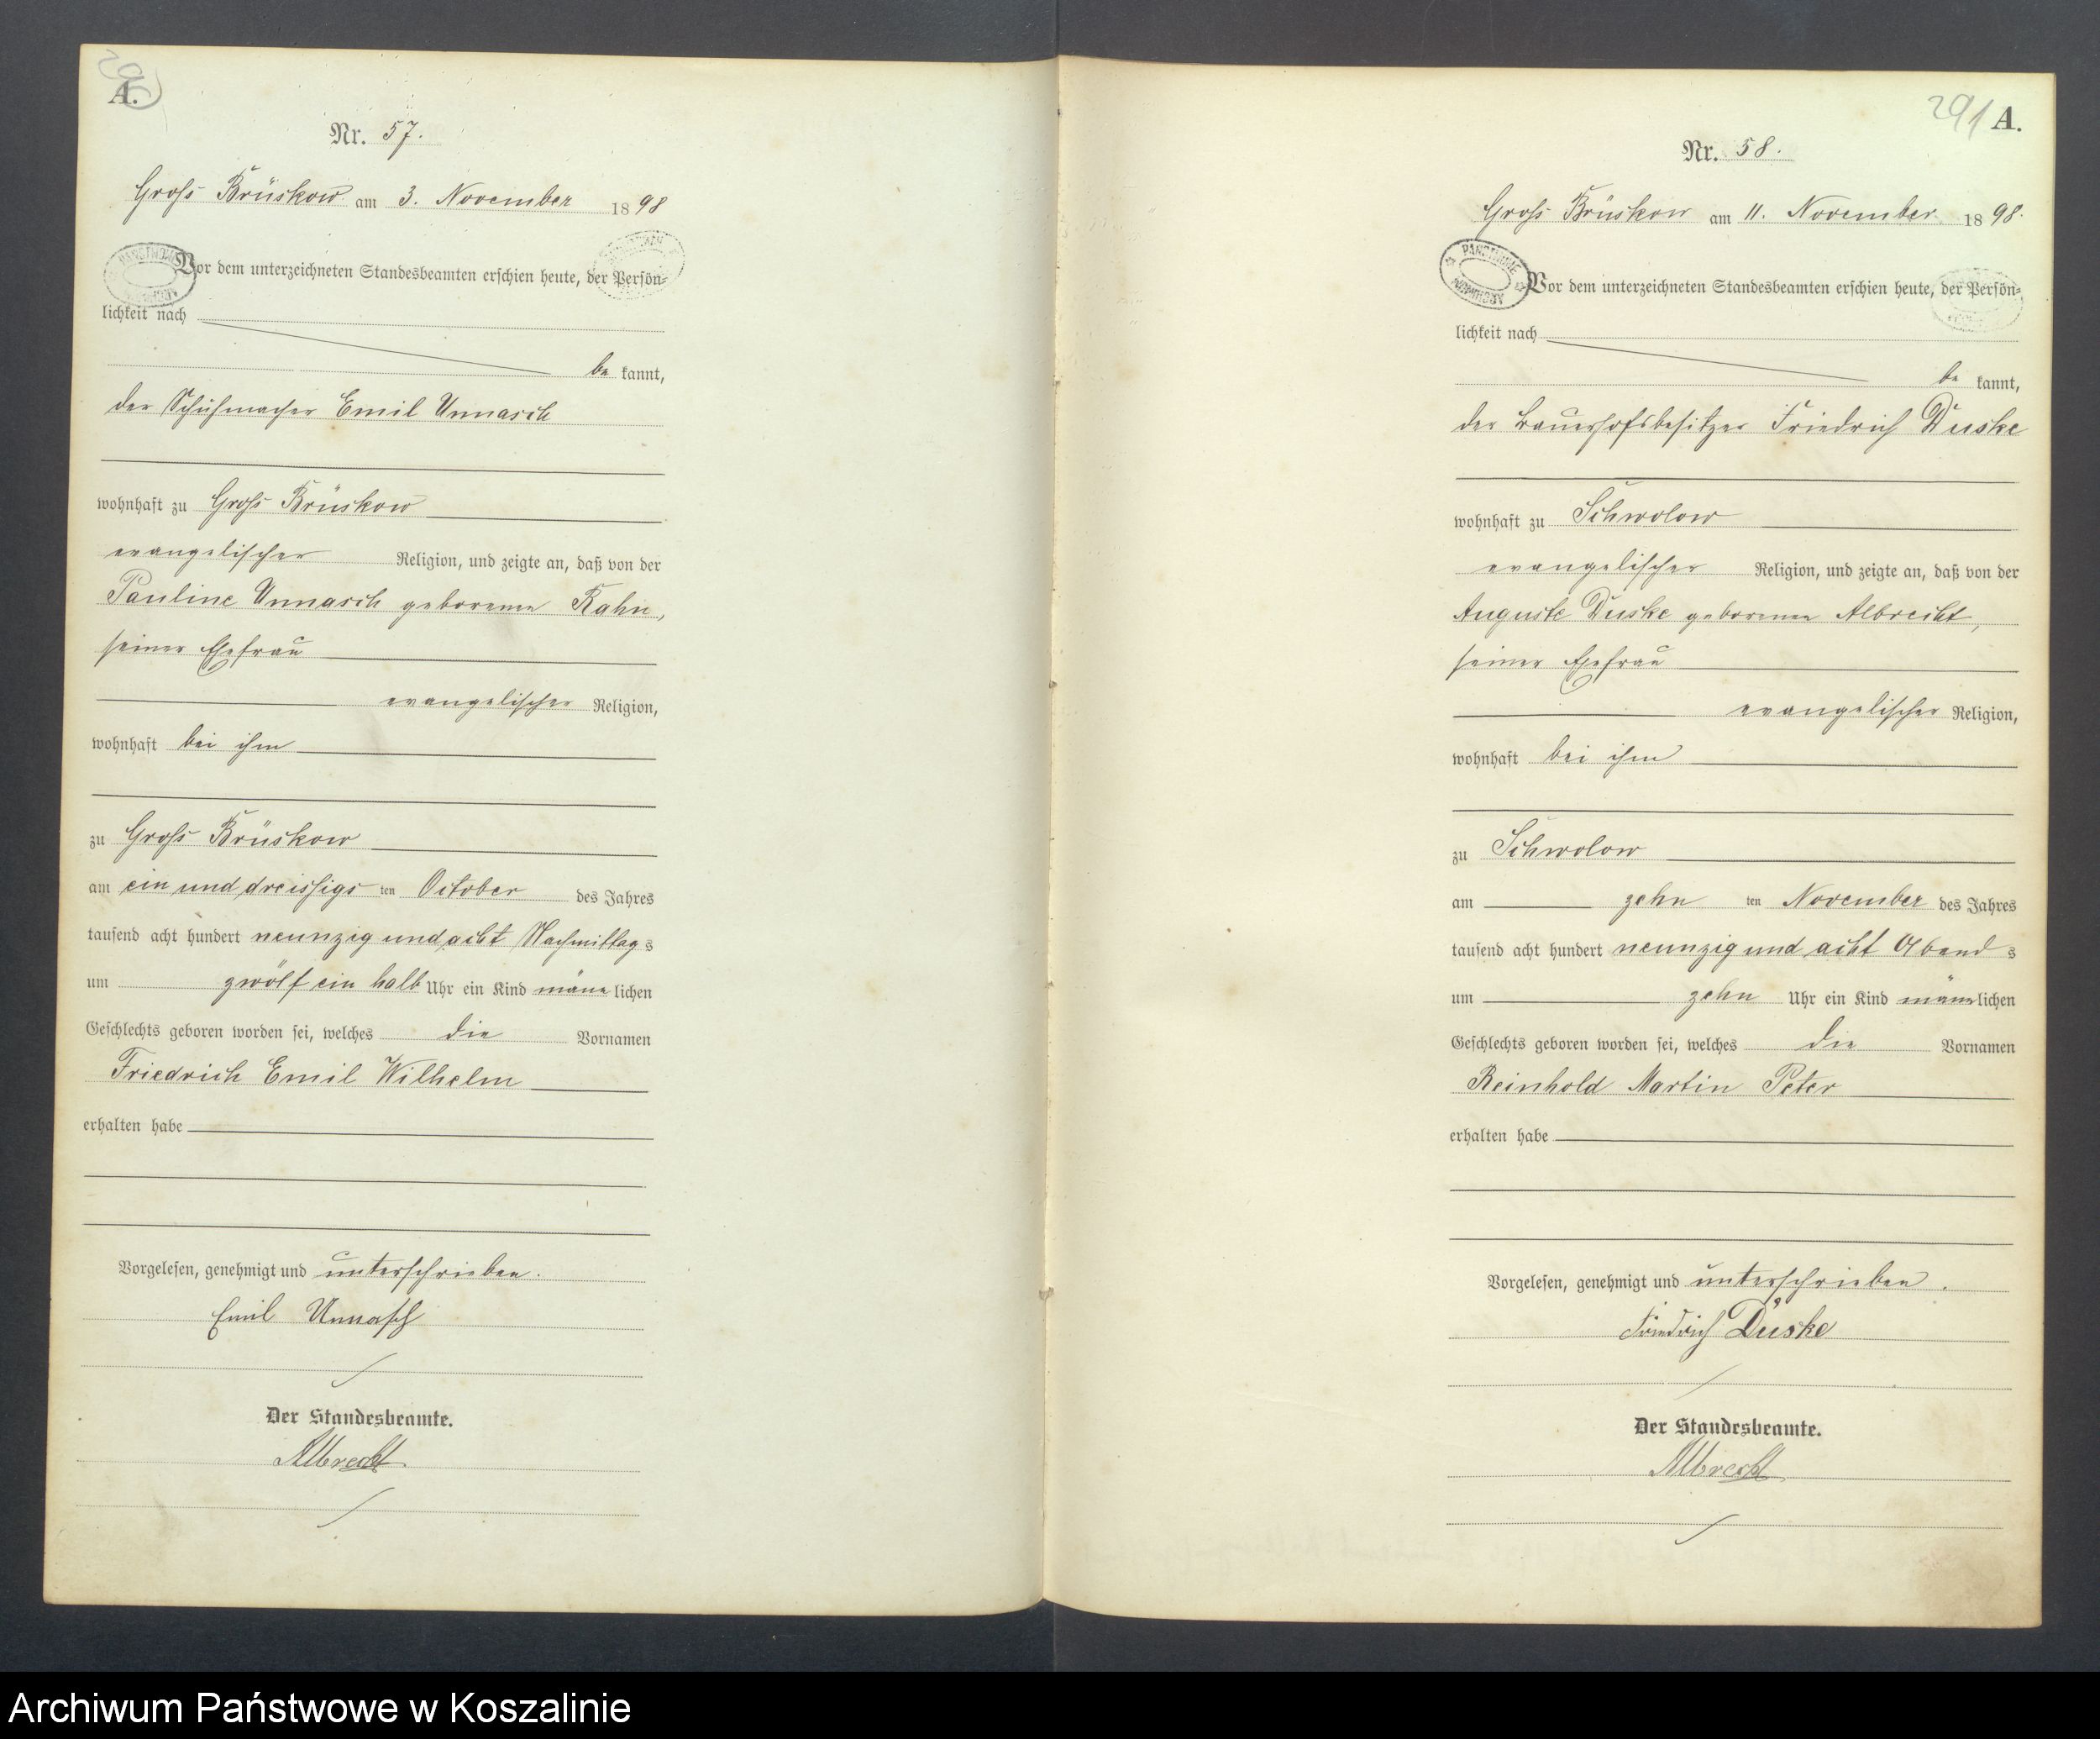 A.
Nr. 57.
Gross Brüskow am 3. November 1898
Vor dem unterzeichneten Standesbeamten erschien heute, der Persön-
lichkeit nach
be kannt,
der Schuhmacher Emil Unnasch
wohnhaft zu Gross Brüskow
evangelischer Religion, und zeigte an, daß von der
Pauline Unnasch geborenen Kahn,
seiner Ehefrau
evangelischer Religion,
wohnhaft bei ihm
zu Gross Brüskow
am ein und dreissigs ten October des Jahres
tausend acht hundert neunzig und acht Nachmittag s
um zwölf ein halb Uhr ein Kind männ lichen
Geschlechts geboren worden sei, welches die Vornamen
Friedrich Emil Wilhelm
erhalten habe
Vorgelesen, genehmigt und unterschrieben.
Emil Unnasch
Der Standesbeamte.
Albrecht
291 A.
Nr. 58.
Gross Brüskow am 11. November 1898.
PAŃSTWOWE
ARCHIWUM
Vor dem unterzeichneten Standesbeamten erschien heute, der Persön-
lichkeit nach
be kannt,
der Bauerhofsbesitzer Friedrich Duske
wohnhaft zu Schwolow
evangelischer Religion, und zeigte an, daß von der
Auguste Duske geborenen Albrecht,
seiner Ehefrau
evangelischer Religion,
wohnhaft bei ihm
zu Schwolow
am zehn ten November des Jahres
tausend acht hundert neunzig und acht Abend s
um zehn Uhr ein Kind männ lichen
Geschlechts geboren worden sei, welches die Vornamen
Reinhold Martin Peter
erhalten habe
Vorgelesen, genehmigt und unterschrieben.
Friedrich Duske
Der Standesbeamte.
Albrecht
Archiwum Państwowe w Koszalinie